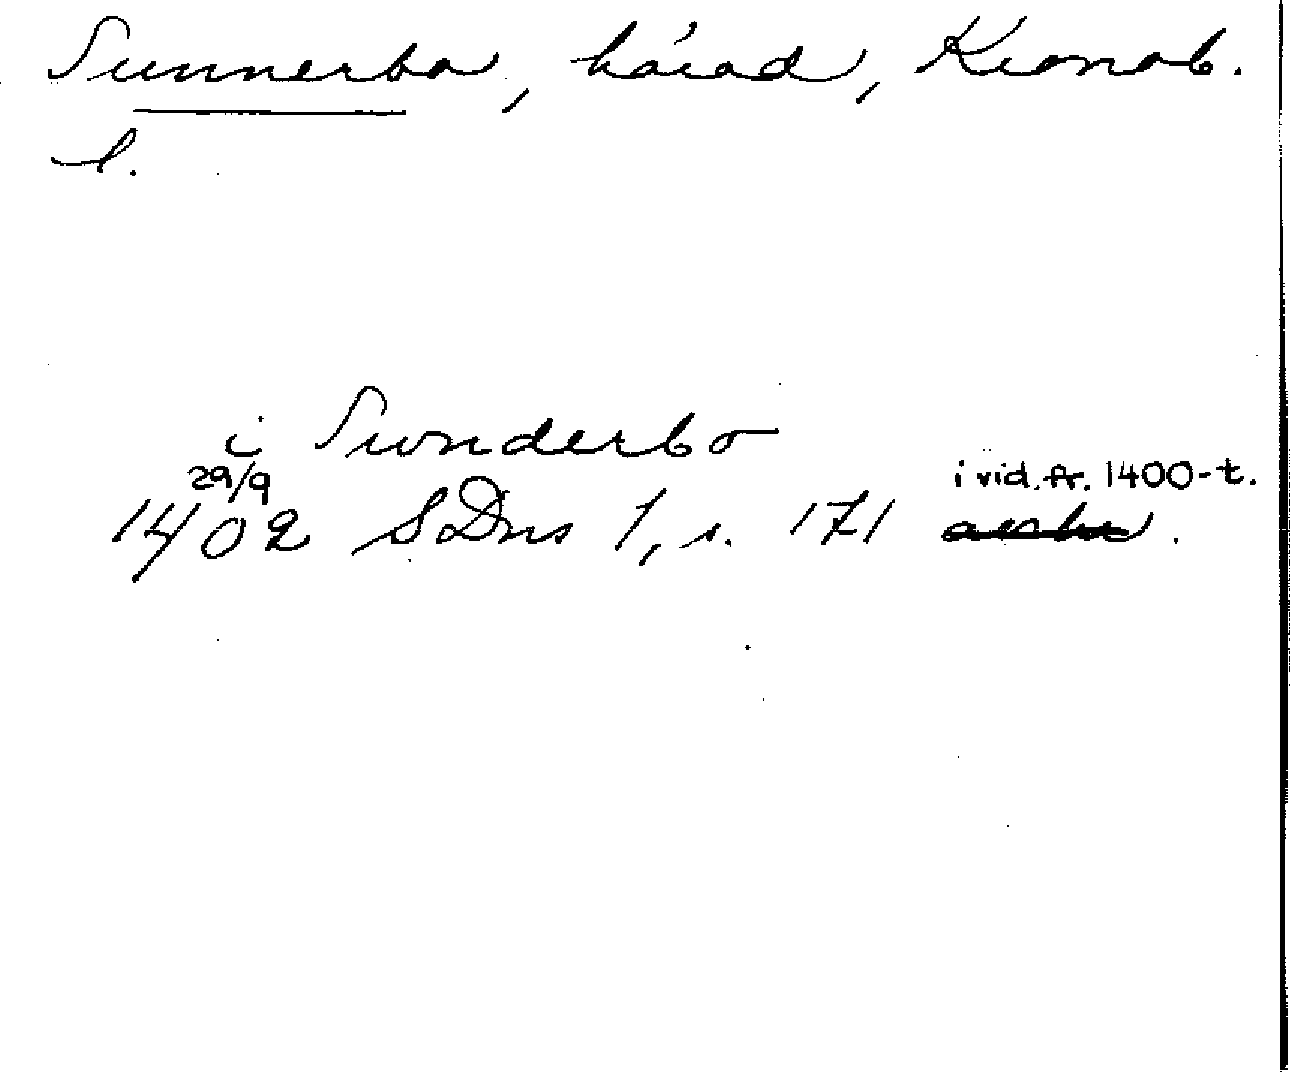 Sunnerbo, härad, Kronob.
l.
i Sunderbo
29/9 i vid. fr. 1400-t.
1402 SDns 1, s. 171